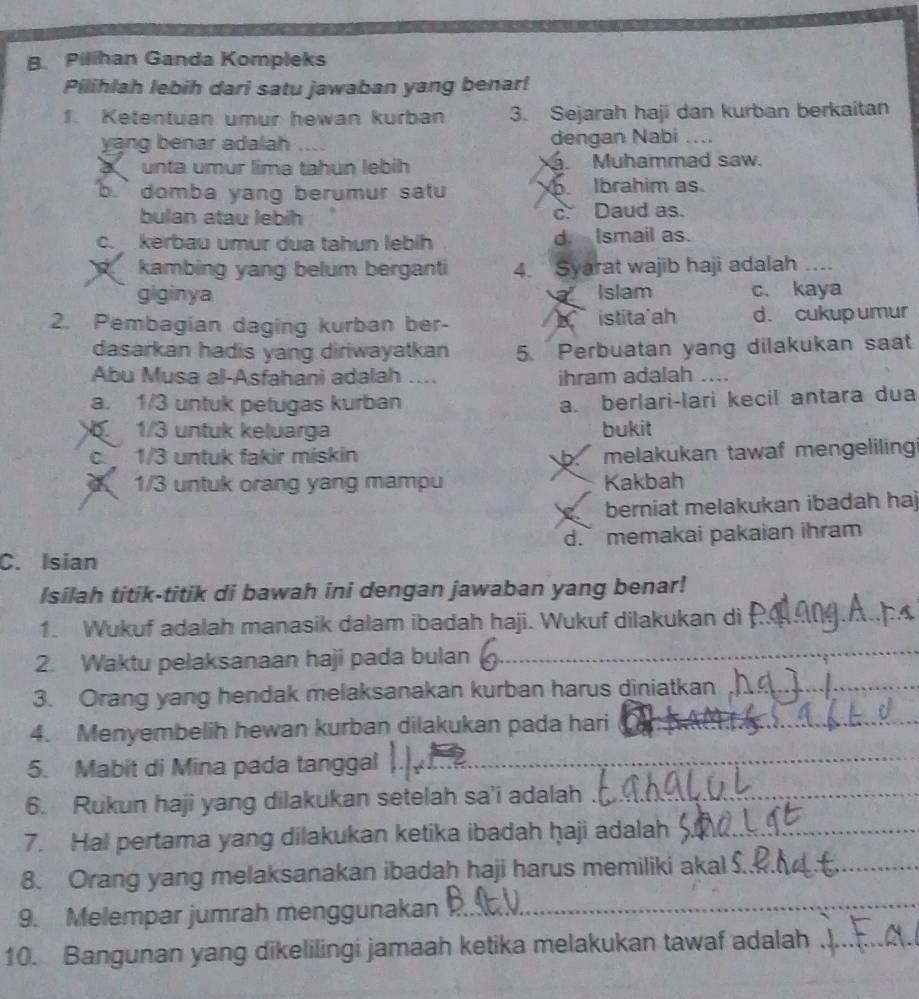 B. Pilihan Ganda Kompleks
Pilihlah lebih dari satu jawaban yang benar!
1. Ketentuan umur hewan kurban
yang benar adalah ....
a. unta umur lima tahun lebih
b. domba yang berumur satu
bulan atau lebih
c. kerbau umur dua tahun lebih
d. kambing yang belum berganti
giginya
2. Pembagian daging kurban ber-
dasarkan hadis yang diriwayatkan
Abu Musa al-Asfahani adalah ....
a. 1/3 untuk petugas kurban
b. 1/3 untuk keluarga
c. 1/3 untuk fakir miskin
d. 1/3 untuk orang yang mampu
3. Sejarah haji dan kurban berkaitan
dengan Nabi ....
a. Muhammad saw.
b. Ibrahim as.
c. Daud as.
d. Ismail as.
4. Syarat wajib haji adalah ....
a. Islam c. kaya
b. istita'ah d. cukup umur
5. Perbuatan yang dilakukan saat
ihram adalah ....
a. berlari-lari kecil antara dua
bukit
b. melakukan tawaf mengelilingi
Kakbah
c. berniat melakukan ibadah haj
d. memakai pakaian ihram
C. Isian
Isilah titik-titik di bawah ini dengan jawaban yang benar!
1. Wukuf adalah manasik dalam ibadah haji. Wukuf dilakukan di Padang
2. Waktu pelaksanaan haji pada bulan 6
3. Orang yang hendak melaksanakan kurban harus diniatkan haji
4. Menyembelih hewan kurban dilakukan pada hari
5. Mabit di Mina pada tanggal
6. Rukun haji yang dilakukan setelah sa'i adalah tahalul
7. Hal pertama yang dilakukan ketika ibadah haji adalah
8. Orang yang melaksanakan ibadah haji harus memiliki akal sehat
9. Melempar jumrah menggunakan Batu
10. Bangunan yang dikelilingi jamaah ketika melakukan tawaf adalah